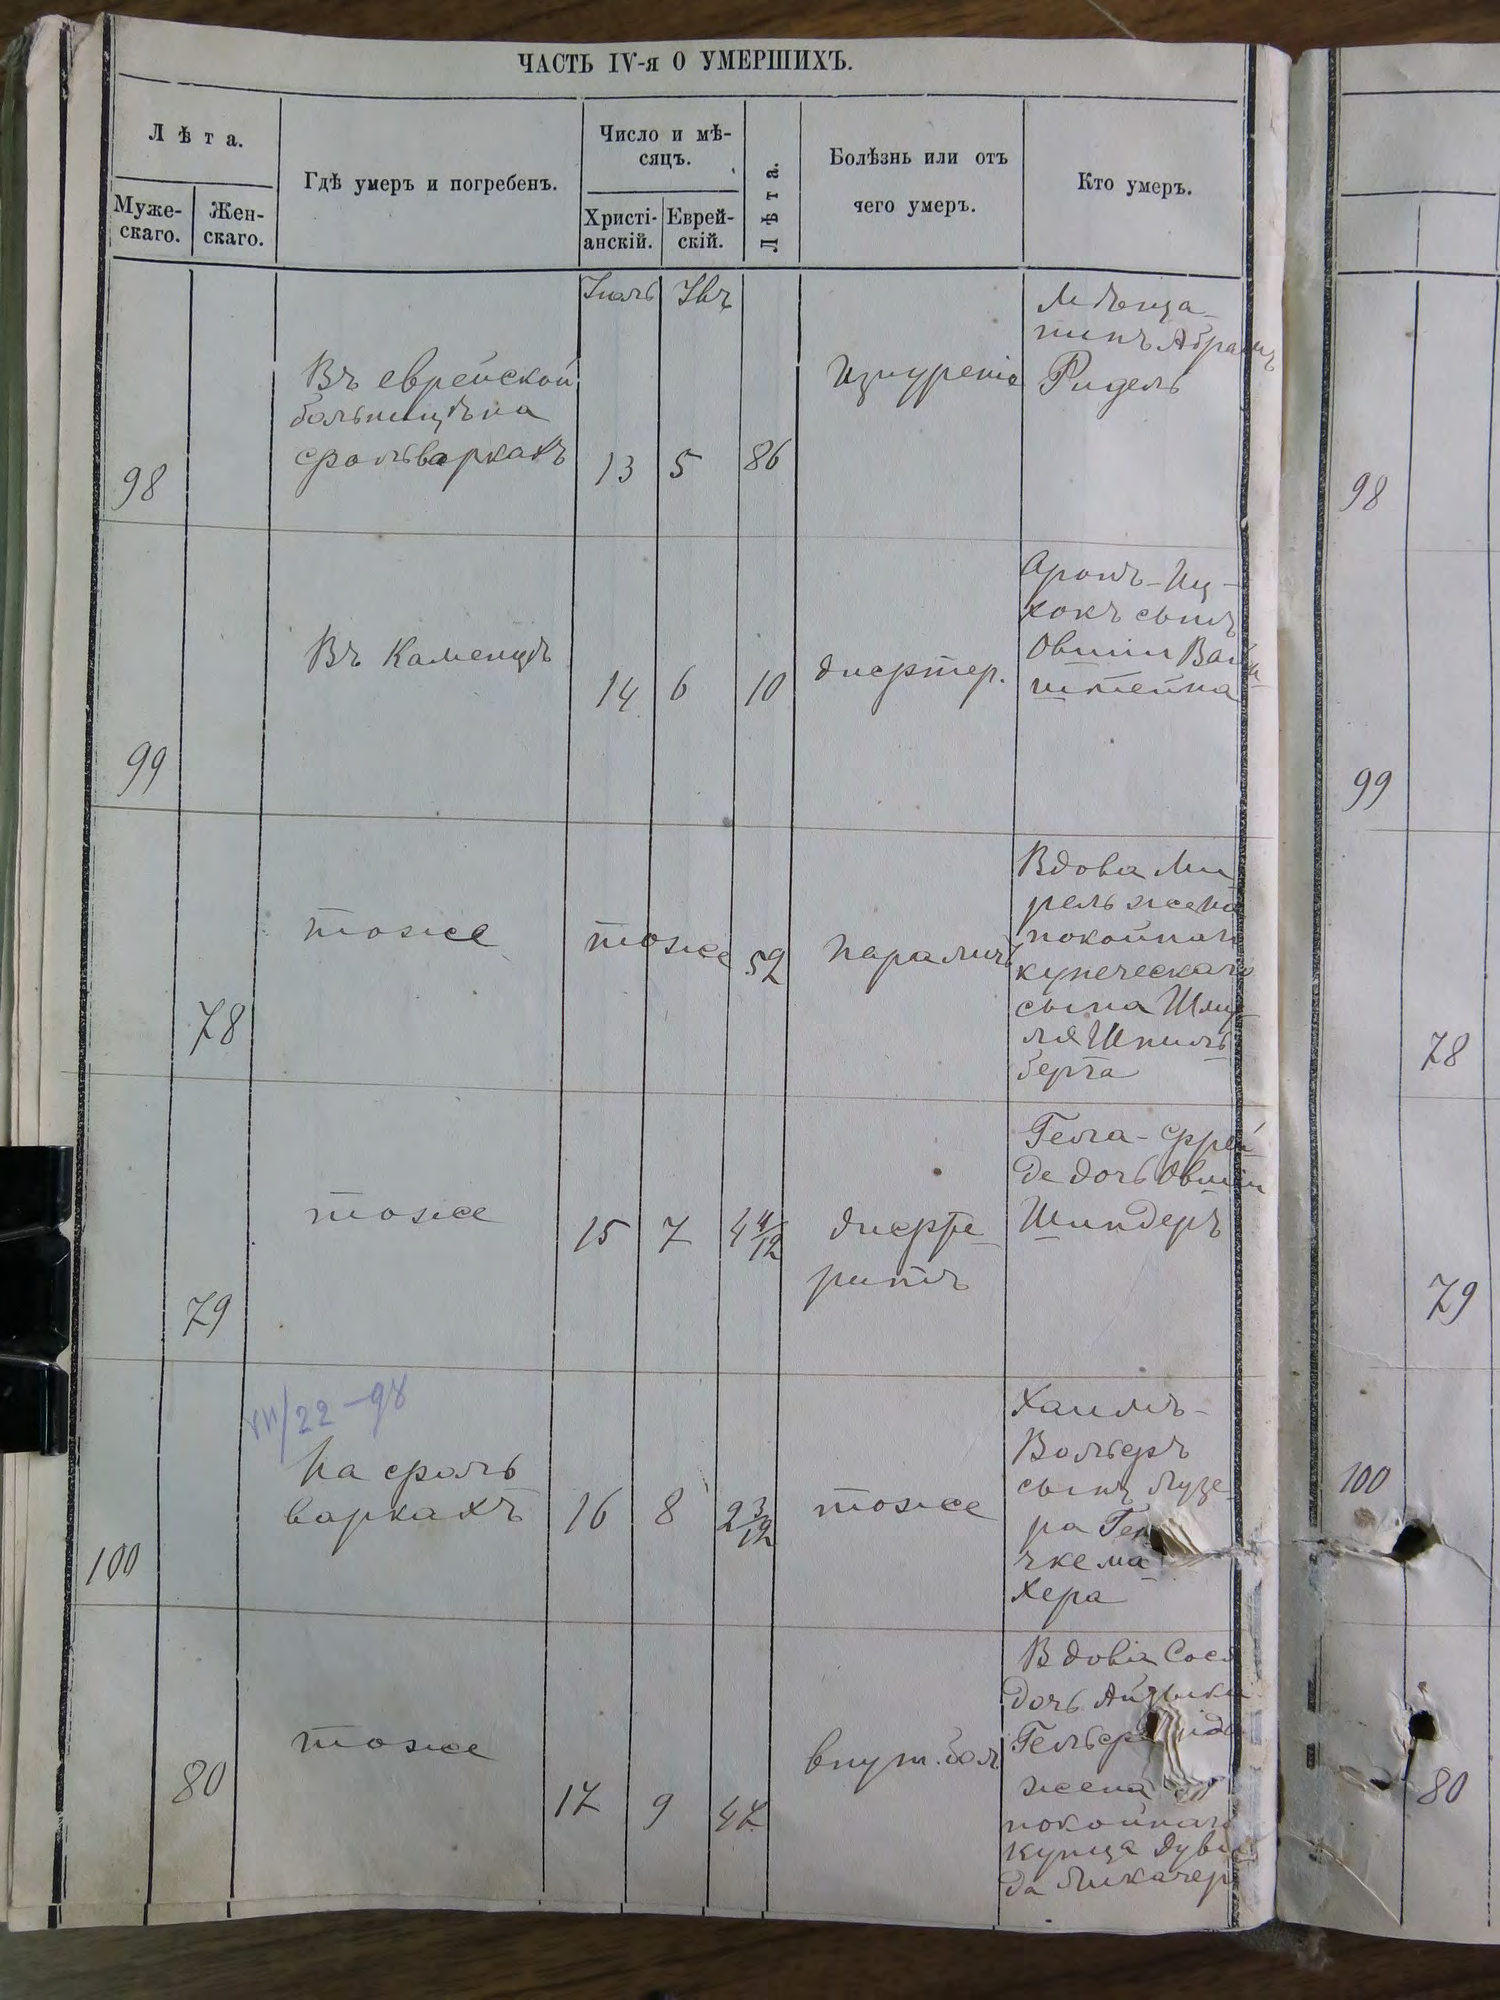 ЧАСТЬ IV-я О УМЕРШИХЪ.
Лѣта.
Муже-
скаго.
Жен-
скаго.
Гдѣ умеръ и погребенъ.
Число и мѣ-
сяцъ.
Христі-
анскій.
Еврей-
скій.
Лѣта.
Болѣзнь или отъ
чего умеръ.
Кто умеръ.
Іюль
98
Въ еврейской
больницѣ на
фольваркахъ
13
5
86
Изнуреніе
Мѣща-
нинъ Абрамъ
Ридель
98
99
Въ Каменцѣ
14
6
10
дифтер.
Аронъ-Иц-
хокъ сынъ
Овшіи Вайн-
штейна
99
78
тоже
тоже
52
параличъ
Вдова Ми-
рель жена
покойнаго
купеческаго
сына Шму-
ля Шпиль-
берга
78
79
тоже
15
7
4 4/12
дифте-
ритъ
Гела-Фрей-
де дочь Овшіи
Шиндеръ
79
VII/22-98
100
На фоль
варкахъ
16
8
2 3/12
тоже
Хаимъ-
Вольфъ
сынъ Лузе-
ра
чкема
хера
100
80
тоже
17
9
47
внут. бол
Вдова Сося
дочь Айзыка
жена
покойнаго
купца Дуви
да
80